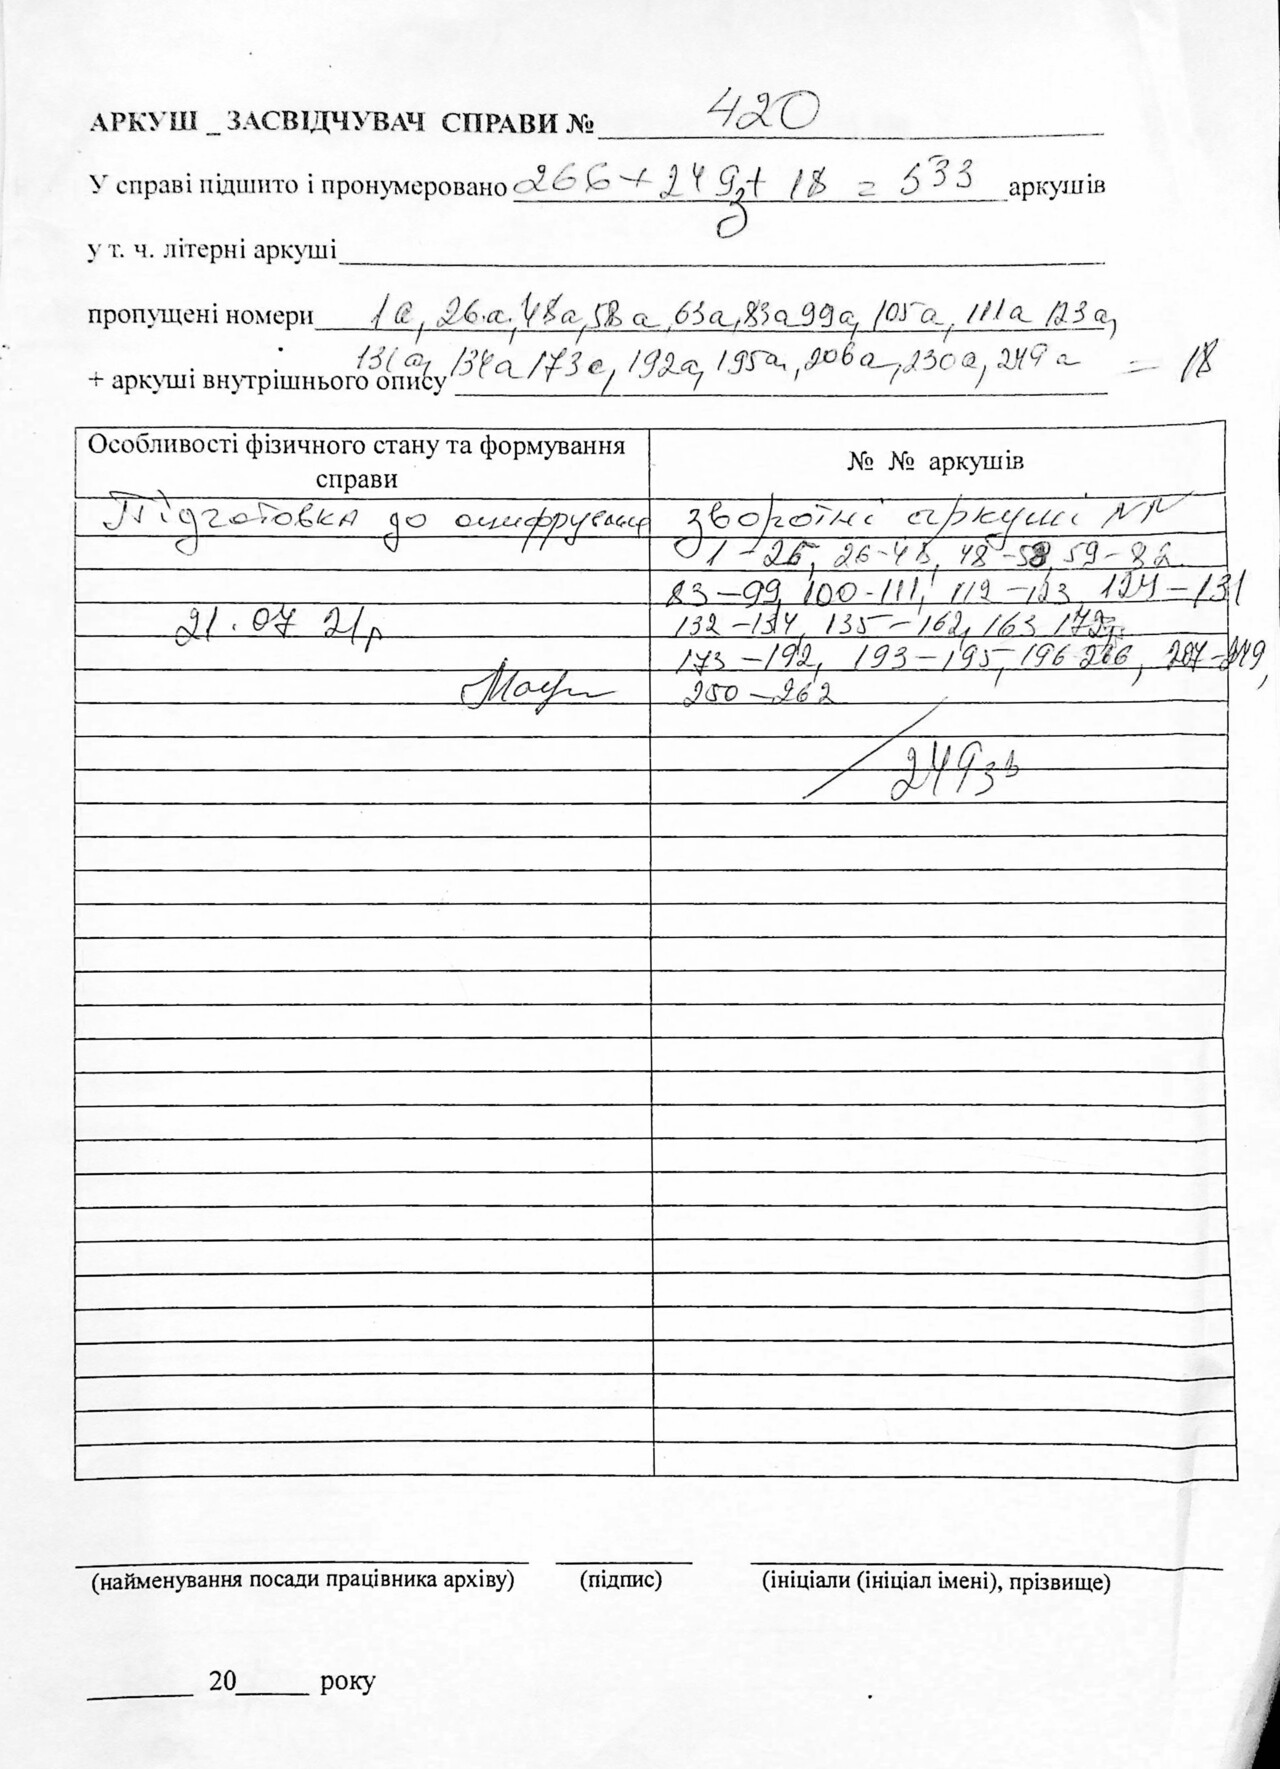 АРКУШ _ ЗАСВІДЧУВАЧ СПРАВИ № 420
У справі підшито і пронумеровано 266 + 249з + 18 = 533 аркушів
у т. ч. літерні аркуші
пропущені номери 1а, 26а, 48а, 58а, 63а, 83а 99а, 105а, 111а 123а,
131а, 134а 173а, 192а, 195а, 206а, 230а, 249а = 18
+ аркуші внутрішнього опису
Особливості фізичного стану та формування справи
№ № аркушів
Підготовка до
зворотні аркуші NN
1-25, 26-48, 48-58, 59-82
83-99, 100-111, 112-123, 124-131
21.07 21р
132-134, 135-162, 163 172,
173-192, 193-195, 196 206, 207-249,
250-262
249зв
(найменування посади працівника архіву) (підпис) (ініціали (ініціал імені), прізвище)
20 року